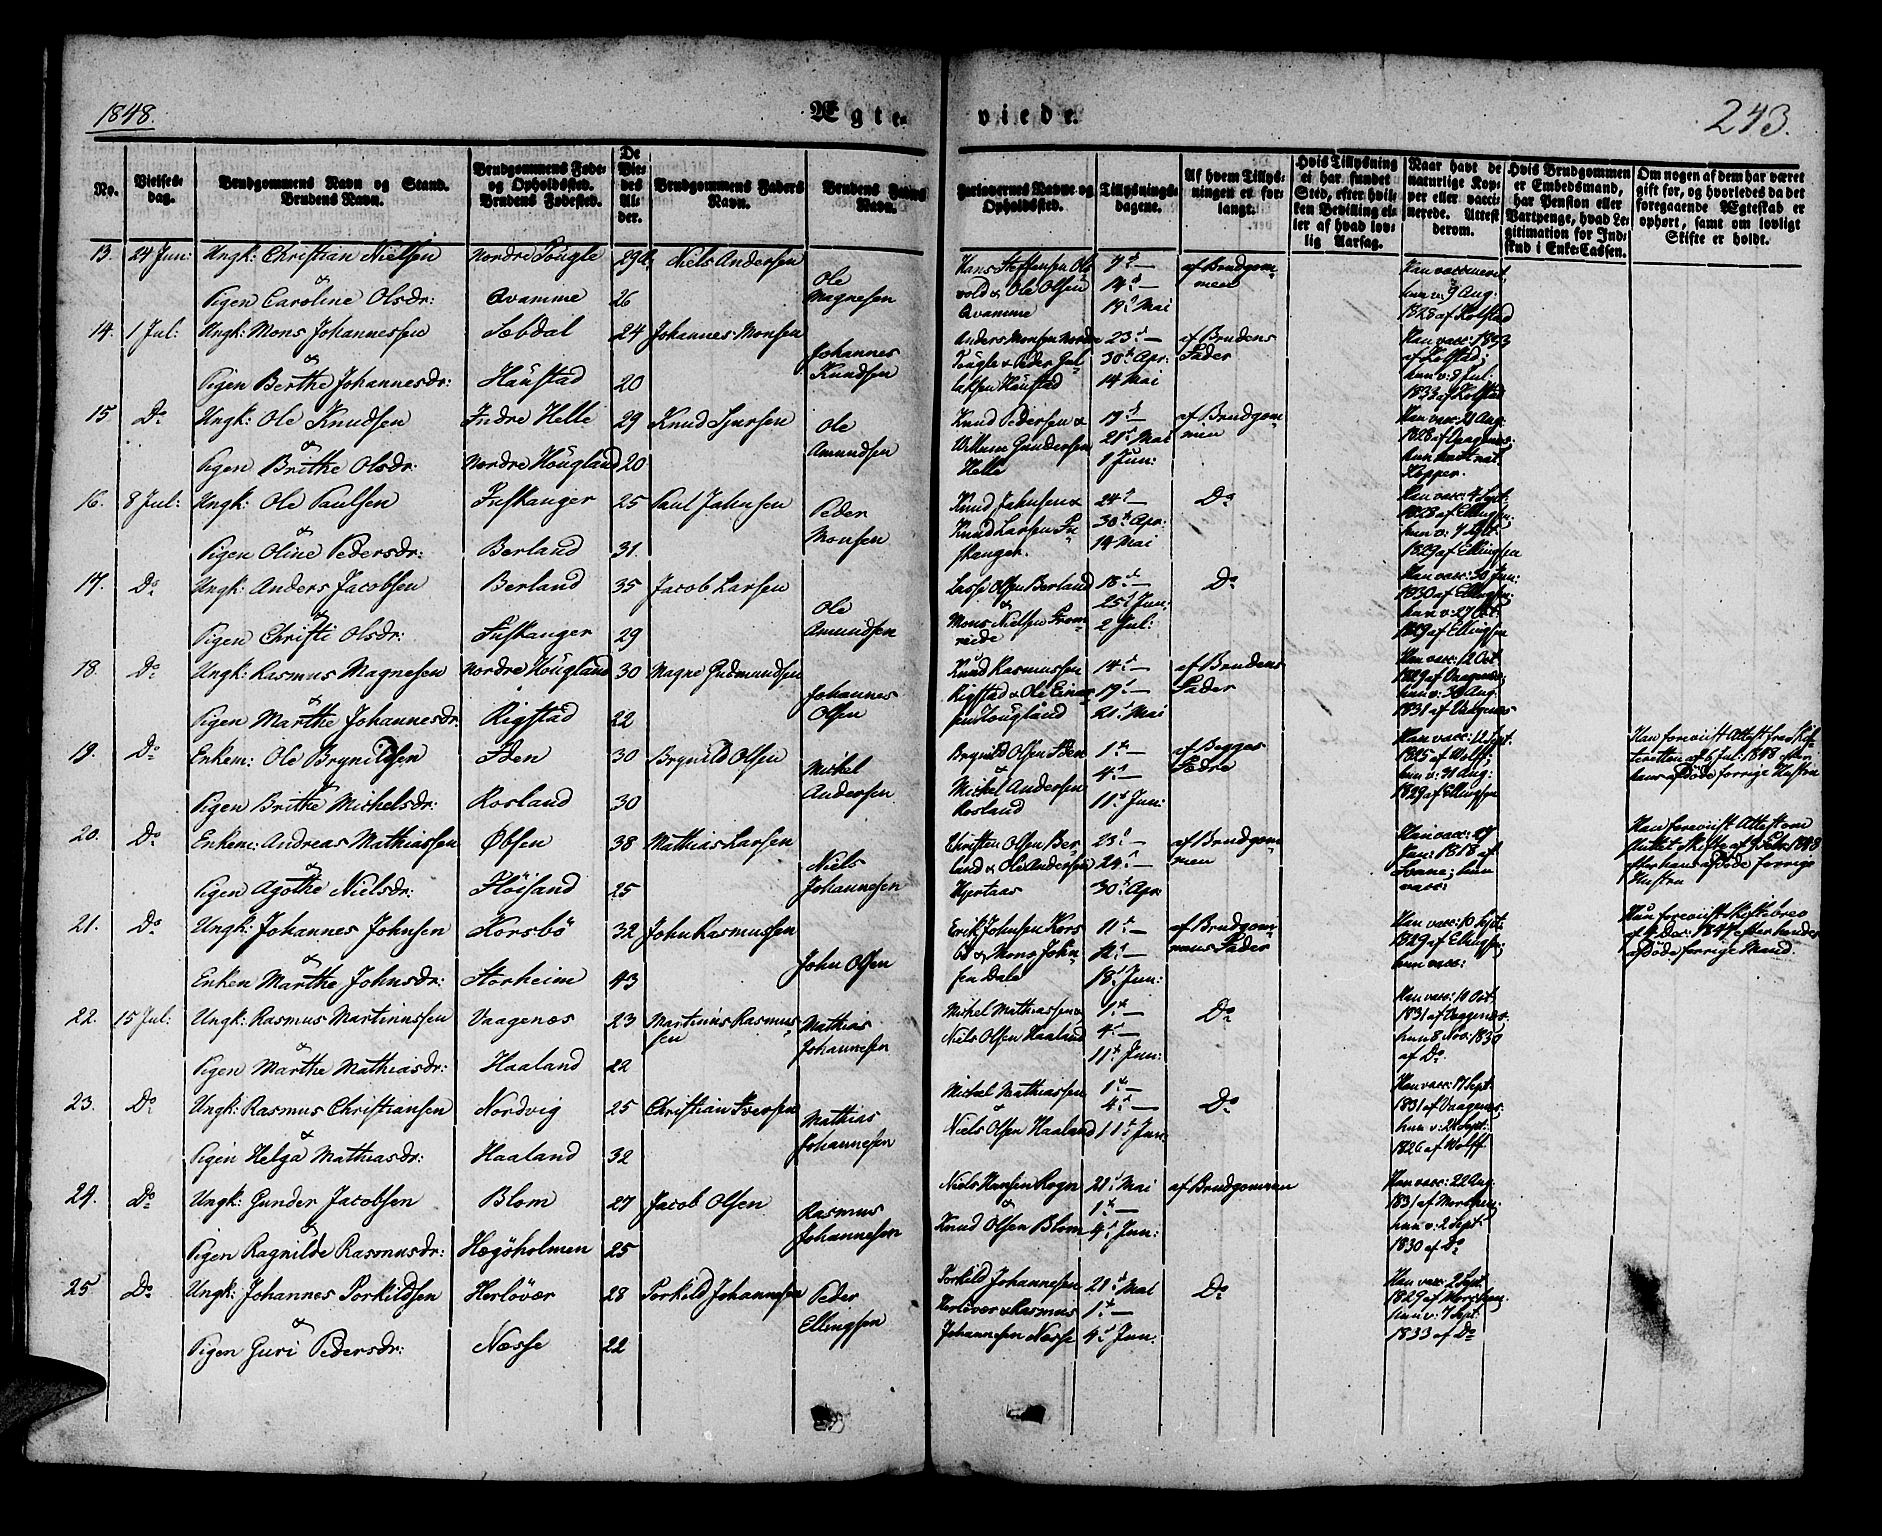 1848.
Ægte-viede.
243.
No.
Vielses-dag.
Brudgommens Navn og Stand. Brudens Navn.
Brudgommens Føde- og Opholdssted. Brudens Fødested.
De Viedes Alder.
Brudgommens Faders Navn.
Brudens Faders Navn.
Forlovernes Navne og Opholdssted.
Tillysnings-dagene.
Af hvem Tillysningen er forlangt.
Hvis Tillysning ei har fundet Sted, efter hvilken Bevilling eller af hvad lovlig Aarsag.
Naar havt de naturlige Kopper eller vaccinerede. Attest derom.
Hvis Brudgommen er Embedsmand, har Pension eller Vartpenge, hvad Legitimation for Indskud i Enke-Cassen.
Om nogen af dem har været gift før, og hvorledes da det foregaaende Ægteskab er ophørt, samt om lovligt Skifte er holdt.
13. 24 Jun: Ungk: Christian Nielsen Nordre Fougle 29 Niels Andersen
& Ole Magnesen
Pigen Caroline Olsdr: Qvamme 26
Ole Olsen Qvamme 7d — 14d — 19d Mai af Brudgommen
hun v. 9 Aug: 1828 af Kolstad
14. 1 Jul: Ungk: Mons Johannessen Sæbdal 24 Johannes Monsen
& Johannes Knudsen
Pigen Berthe Johannesdr: Haustad 20
Anders Monsen Nordre Fougle & Peder Gullaksen Haustad 23d — 30d Apr: 14 Mai af Brudens Fader
Han vacc: 1833 af Kolstad; hun v: 8 Jul: 1833 af Kolstad
15 Do Ungk: Ole Knudsen Indre Helle 29 Knud Sjursen
& Ole Amundsen
Pigen Brithe Olsdr: Nordre Høugland 20
Knud Pedersen & Gundersen Helle 19d — 21d Mai 1 Jun: af Brudgommen
Han vacc: 21 Aug: 1828 af Vaagenæs: hun havt nat: Kopper.
16. 8 Jul: Ungk: Ole Paulsen Fuskanger 25 Paul Jahnsen
& Peder Monsen
Pigen Oline Pedersdr: Berland 31.
Knud Jahnsen & Knud Larsen Fuskanger. 24d — 30d Apr: 14 Mai Do
Han vacc: 4 Sept: 1828 af Ellingsen: hun v: 7 Sept: 1829 af Ellingsen
17. Do Ungk: Anders Jacobsen Berland 35 Jacob Larsen
& Ole Amundsen
Pigen Christi Olsdr: Fuskanger 29
Lasse Olsen Berland & Mons Nielsen Fromreide 18d — 25d Jun: 2 Jul: Do
Han vacc: 30 Jun: 1830 af Ellingsen: hun v: 27 Oct: 1829 af Ellingsen
18. Do Ungk: Rasmus Magnesen Nordre Høugland 30 Magne Gudmundsen
& Johannes Olsen
Pigen Marthe Johannesdr: Rigstad 22
Knud Rasmussen Rigstad & Ole Einarsen Høugland 14d — 19d — 21d Mai af Brudens Fader
Han vacc: 12 Oct 1829 af Vaagenæs: hun v: 30 Aug: 1831 af Vaagenæs
19. Do Enkem: Ole Brynildsen Iden 30 Brynild Olsen
& Michel Andersen
Pigen Brithe Michelsdr: Rosland 30
Brynild Olsen Iden & Michel Andersen Rosland 1d — 4d — 11d Jun: af Begges Fædre
Han vacc: 12 Sept: 1825 af Wolff, hun v: 31 Aug: 1829 af Ellingsen
Han foreviist Attest fra Skifteretten af 6 Jul: 1848 efter hans afdøde forrige Hustru
20. Do Enkem: Andreas Mathiassen Øbsen 38 Mathias Larsen
& Niels Johannesen
Pigen Agothe Nielsdr: Høisand 25
Christen Olsen Berland & Ole Andersen Hjertaas 23d — 24d — 30d Apr: af Brudgommen
Han vacc: 27 Jan: 1818 af hun vacc:
Han foreviist Attest om sluttet Skifte af 9 Febr: 1848 efter hans afdøde forrige Hustru
21. Do Ungk: Johannes Johnsen Korsbö 32 John Rasmussen
& John Olsen
Enken Marthe Johnsdr: Storheim 43
Erik Johnsen Korsbö & Mons Johnsen Dale 11d — 12d — 18d Jun: af Brudgommens Fader
Han vacc: 10 Sept: 1829 af Ellingsen; hun vacc:
Hun foreviist Skiftebrev af 4 Dec: 1847 efter hendes afdøde forrige Mand.
22. 15 Jul: Ungk: Rasmus Martinussen Vaagenæs 23 Martinus Rasmussen
& Mathias Johannesen
Pigen Marthe Mathiasdr: Haaland 22
Michel Mathiassen & Niels Olsen Haaland 1d — 4d — 11d Jun: Do
Han vacc: 10 Oct: 1831 af Vaagenæs: hun 8 Nov: 1830 af Do
23. Do Ungk: Rasmus Christiansen Nordvig 25 Christian Iversen
& Mathias Johannesen
Pigen Helga Mathiasdr: Haaland 32
Michel Mathiassen & Niels Olsen Haaland 1d — 4d — 11d Jun: Do
Han vacc: 17 Sept: 1831 af Vaagenæs: hun v: 24 Sept: 1826 af Wolff.
24. Do Ungk: Gunder Jacobsen Blom 27 Jacob Olsen
& Rasmus Johannesen
Pigen Ragnilde Rasmusdr: Hægöholmen 25
Niels Hansen Rogn & Knud Olsen Blom 21d Mai 1d — 4d Jun: af Brudgommen
Han vacc: 22 Aug: 1831 af hun v: 2 Sept: 1830 af Do
25 Do Ungk: Johannes Torkildsen Herlövær 28 Torkild Johannesen
& Peder Ellingsen
Pigen Guri Pedersdr: Næsse 22
Torkild Johannesen Herlövær & Rasmus Johannesen Næsse 21d Mai 1d — 4d Jun: Do
Han vacc: 2 Sept: 1829 af hun v: 7 Sept: 1833 af Do